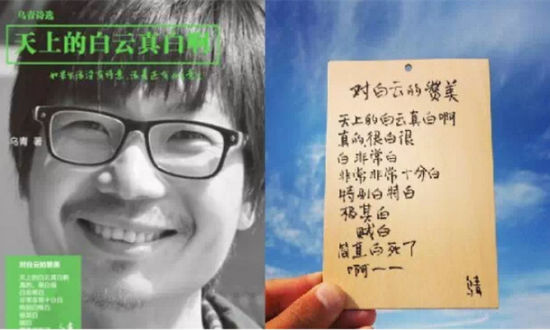 乌青诗选
天上的白云真白啊
乌青 著
对白云的赞美
天上的白云真白啊
真的,很白很
白非常白
非常非常十分白
特别白特白
极其白
贼白
对白云的赞美
天上的白云真白啊
真的很白很
白非常白
非常非常十分白
特别白特白
极其白
贼白
简直白死了
啊——